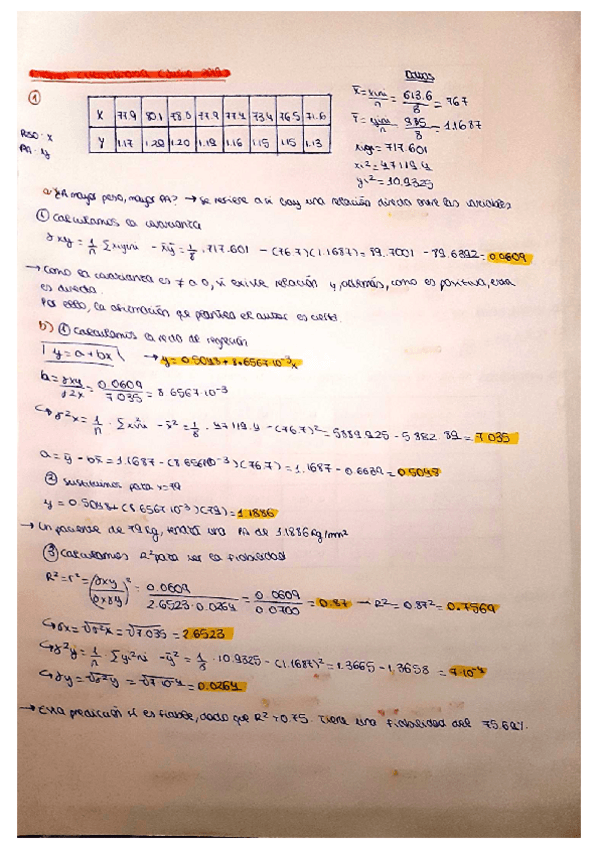 Datos
①
X 77.9 80.1 78.0 77.9 77.4 73.4 76.5 71.6
Y 1.17 1.20 1.20 1.19 1.16 1.15 1.15 1.13
PESO: x
PA: y
x̄ = Σxini/n = 613.6/8 = 76.7
ȳ = Σyini/n = 9.35/8 = 1.1687
xiyi = 717.601
xi² = 47119.4
yi² = 10.9325
a) ¿A mayor peso, mayor PA? → Se refiere a si hay una relación directa entre las variables
① Calculamos la covarianza
Sxy = 1/n Σxiyini - x̄ȳ = 1/8 · 717.601 - (76.7)(1.1687) = 89.7001 - 89.6392 = 0.0609
→ Como la covarianza es ≠ a 0, sí existe relación y, además, como es positiva, esta
es directa.
Por ello, la afirmación que plantea el autor es cierta.
b) ① Calculamos la recta de regresión
y = a + bx → y = 0.5048 + 8.6567·10⁻³x
b = Sxy/S²x = 0.0609/7.035 = 8.6567·10⁻³
↳ S²x = 1/n · Σxi²ni - x̄² = 1/8 · 47119.4 - (76.7)² = 5889.925 - 5882.89 = 7.035
a = ȳ - bx̄ = 1.1687 - (8.6567·10⁻³)(76.7) = 1.1687 - 0.6639 = 0.5048
② Sustituimos para x=79
y = 0.5048 + (8.6567·10⁻³)(79) = 1.1886
→ Un paciente de 79 Kg, tendrá una PA de 1.1886 Kg/mm²
③ Calculamos R² para ver la fiabilidad
R² = r² = (Sxy/SxSy)² = 0.0609/2.6523·0.0264 = 0.0609/0.0700 = 0.87 → R² = 0.87² = 0.7569
↳ Sx = √S²x = √7.035 = 2.6523
↳ S²y = 1/n · Σyi²ni - ȳ² = 1/8 · 10.9325 - (1.1687)² = 1.3665 - 1.3658 = 7·10⁻⁴
↳ Sy = √S²y = √7·10⁻⁴ = 0.0264
→ Esta predicción sí es fiable, dado que R² > 0.75. Tiene una fiabilidad del 75.69%.